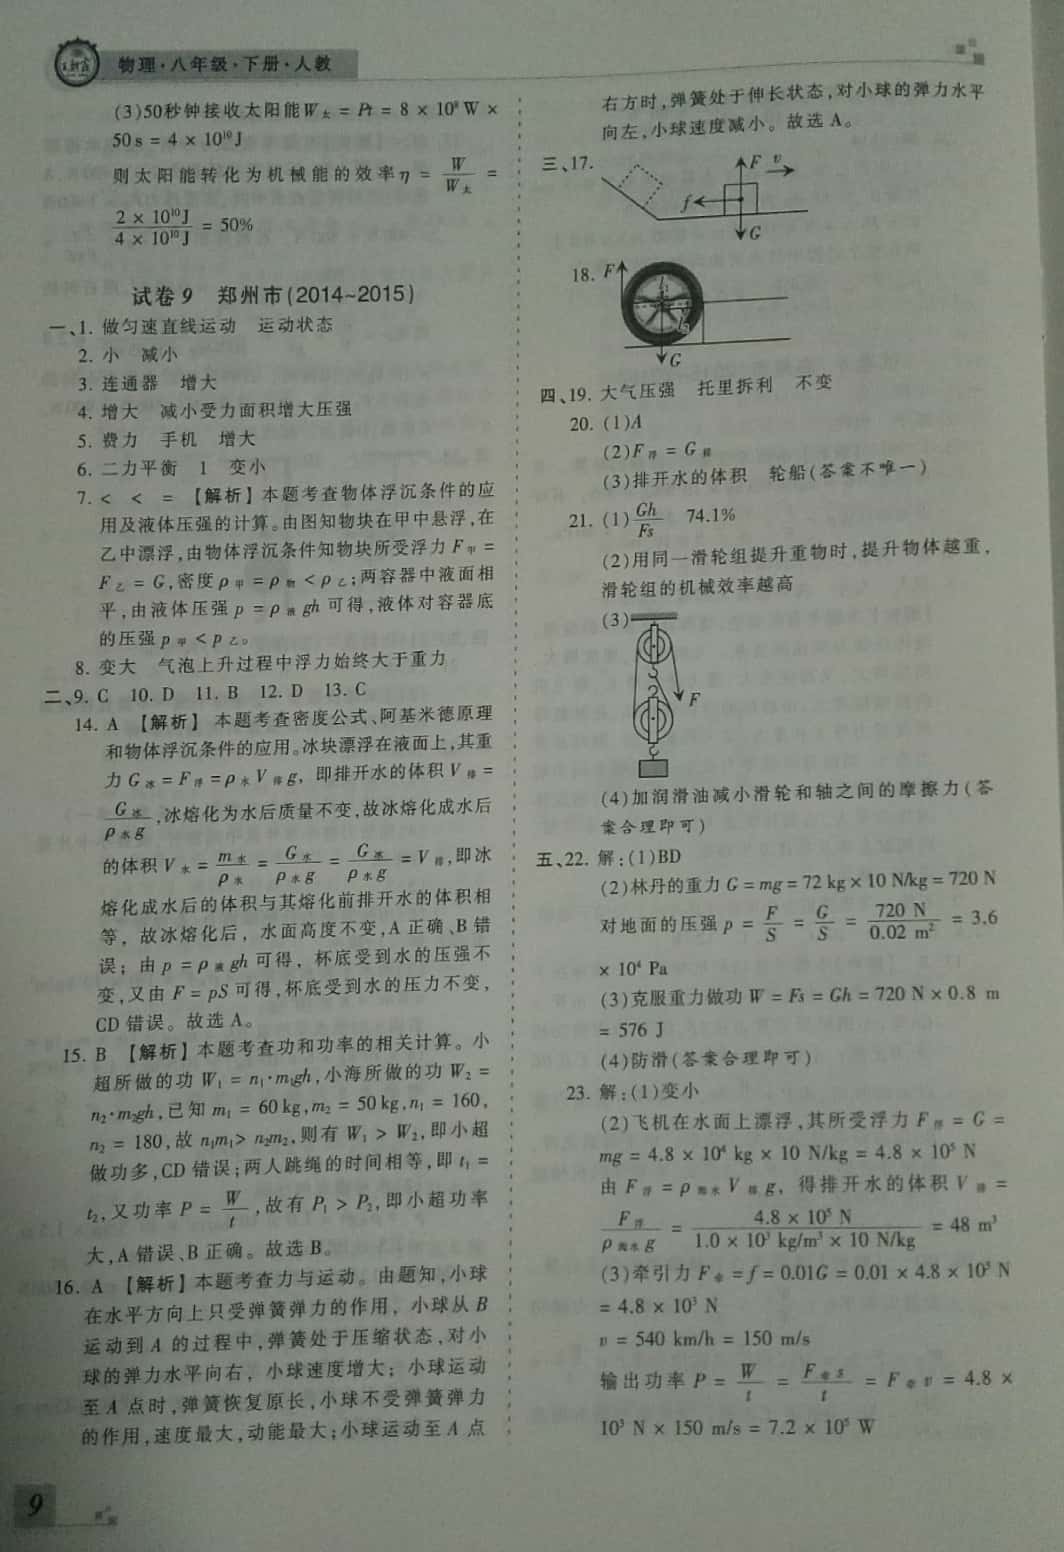 物理·八年级·下册·人教
(3)50秒钟接收太阳能W太 = Pt = 8 × 10⁸ W ×
50 s = 4 × 10¹⁰ J
则太阳能转化为机械能的效率η = W/W太 =
2 × 10¹⁰J / 4 × 10¹⁰J = 50%
试卷9 郑州市(2014~2015)
一、1. 做匀速直线运动 运动状态
2. 小 减小
3. 连通器 增大
4. 增大 减小受力面积增大压强
5. 费力 手机 增大
6. 二力平衡 1 变小
7. < < = 【解析】本题考查物体浮沉条件的应
用及液体压强的计算。由图知物块在甲中悬浮,在
乙中漂浮,由物体浮沉条件知物块所受浮力 F甲 =
F乙 = G,密度ρ甲 = ρ物 < ρ乙;两容器中液面相
平,由液体压强 p = ρ液gh 可得,液体对容器底
的压强 p甲 < p乙。
8. 变大 气泡上升过程中浮力始终大于重力
二、9. C 10. D 11. B 12. D 13. C
14. A 【解析】本题考查密度公式、阿基米德原理
和物体浮沉条件的应用。冰块漂浮在液面上,其重
力 G冰 = F浮 = ρ水V排g, 即排开水的体积 V排 =
G冰/ρ水g ,冰熔化为水后质量不变,故冰熔化成水后
的体积 V水 = m水/ρ水 = G水/ρ水g = G冰/ρ水g = V排,即冰
熔化成水后的体积与其熔化前排开水的体积相
等, 故冰熔化后, 水面高度不变,A 正确、B 错
误; 由 p = ρ液gh 可得, 杯底受到水的压强不
变,又由 F = pS 可得,杯底受到水的压力不变,
CD 错误。故选 A。
15. B 【解析】本题考查功和功率的相关计算。小
超所做的功 W₁ = n₁·m₁gh,小海所做的功 W₂ =
n₂·m₂gh,已知 m₁ = 60 kg,m₂ = 50 kg,n₁ = 160,
n₂ = 180,故 n₁m₁> n₂m₂,则有 W₁ > W₂,即小超
做功多,CD 错误;两人跳绳的时间相等,即 t₁ =
t₂,又功率 P = W/t ,故有 P₁ > P₂,即小超功率
大,A 错误、B 正确。故选 B。
16. A 【解析】本题考查力与运动。由题知,小球
在水平方向上只受弹簧弹力的作用, 小球从 B
运动到 A 的过程中,弹簧处于压缩状态,对小
球的弹力水平向右, 小球速度增大; 小球运动
至 A 点时,弹簧恢复原长,小球不受弹簧弹力
的作用,速度最大,动能最大;小球运动至 A 点
9
右方时,弹簧处于伸长状态,对小球的弹力水平
向左,小球速度减小。故选 A。
三、17.
F v
f
G
18. F
l₁
l₂
G
四、19. 大气压强 托里拆利 不变
20. (1)A
(2)F浮 = G排
(3)排开水的体积 轮船(答案不唯一)
21. (1) Gh/Fs 74.1%
(2)用同一滑轮组提升重物时,提升物体越重,
滑轮组的机械效率越高
(3)
F
(4)加润滑油减小滑轮和轴之间的摩擦力(答
案合理即可)
五、22. 解:(1)BD
(2)林丹的重力 G = mg = 72 kg × 10 N/kg = 720 N
对地面的压强 p = F/S = G/S = 720 N/0.02 m² = 3.6
× 10⁴ Pa
(3)克服重力做功 W = Fs = Gh = 720 N × 0.8 m
= 576 J
(4)防滑(答案合理即可)
23. 解:(1)变小
(2)飞机在水面上漂浮,其所受浮力 F浮 = G =
mg = 4.8 × 10⁴ kg × 10 N/kg = 4.8 × 10⁵ N
由 F浮 = ρ海水V排g, 得排开水的体积 V排 =
F浮/ρ海水g = 4.8 × 10⁵ N / 1.0 × 10³ kg/m³ × 10 N/kg = 48 m³
(3)牵引力 F牵 = f = 0.01G = 0.01 × 4.8 × 10⁵ N
= 4.8 × 10³ N
v = 540 km/h = 150 m/s
输出功率 P = W/t = F牵s/t = F牵v = 4.8 ×
10³ N × 150 m/s = 7.2 × 10⁵ W